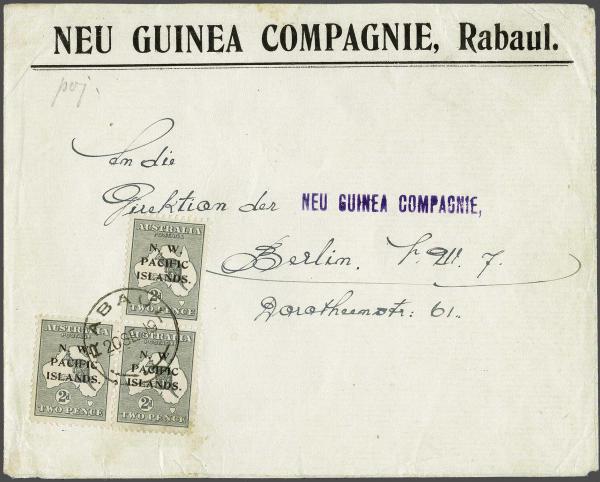 NEU GUINEA COMPAGNIE, Rabaul.
An die
Direktion der NEU GUINEA COMPAGNIE,
Berlin. N.W. 7.
Dorotheenstr: 61.
AUSTRALIA
POSTAGE
N. W.
PACIFIC
ISLANDS.
2d
TWO PENCE
RABAUL
20 SE 19
AUSTRALIA
POSTAGE
N. W.
PACIFIC
ISLANDS.
2d
TWO PENCE
AUSTRALIA
POSTAGE
N. W.
PACIFIC
ISLANDS.
2d
TWO PENCE